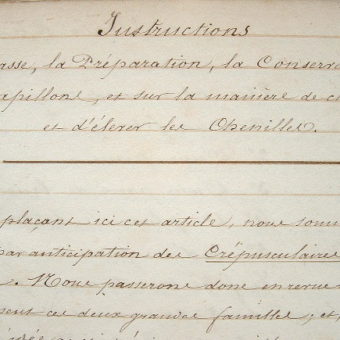 Instructions
asse, la Préparation, la Conserva
apillons, et sur la manière de c
et d'élever les Chenilles.
plaçant ici cet article, nous som
par anticipation des Crépusculaire
. Nous passerons donc en revue
sent ces deux grandes familles; et,